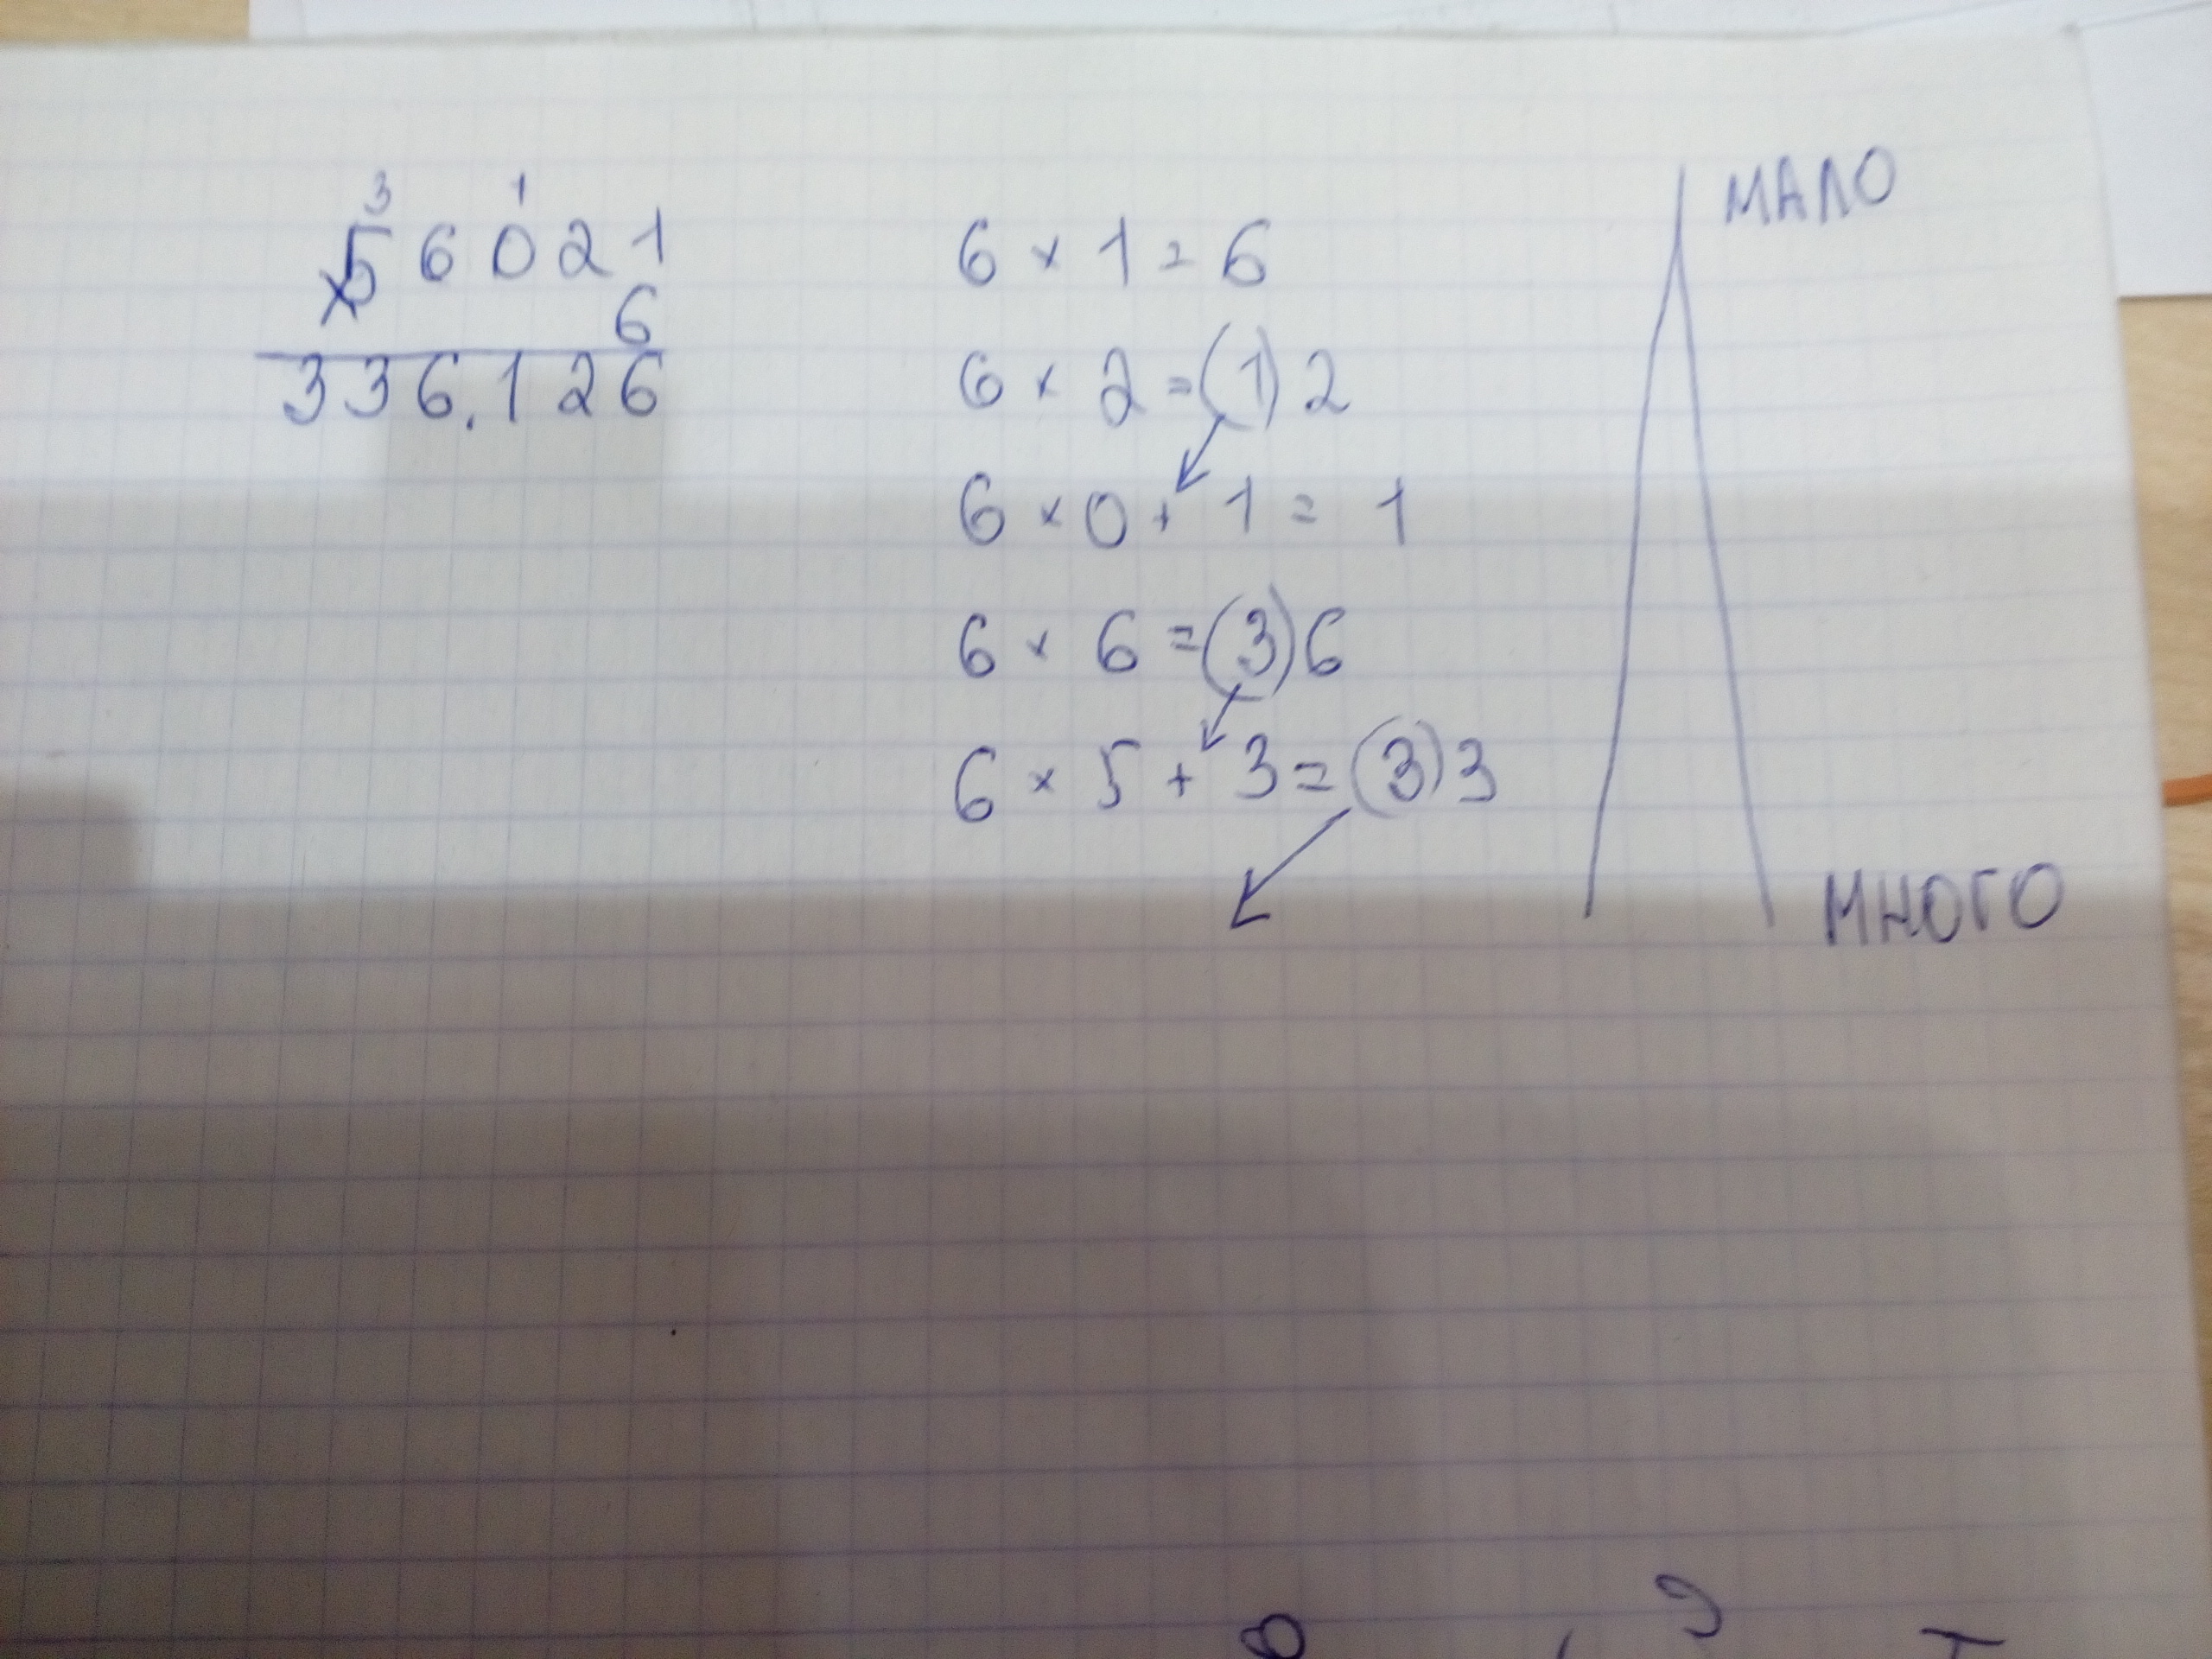 3 1
56021
× 6
336.126
6 × 1 = 6
6 × 2 = (1)2
6 × 0 + 1 = 1
6 × 6 = (3)6
6 × 5 + 3 = (3)3
МАЛО
МНОГО